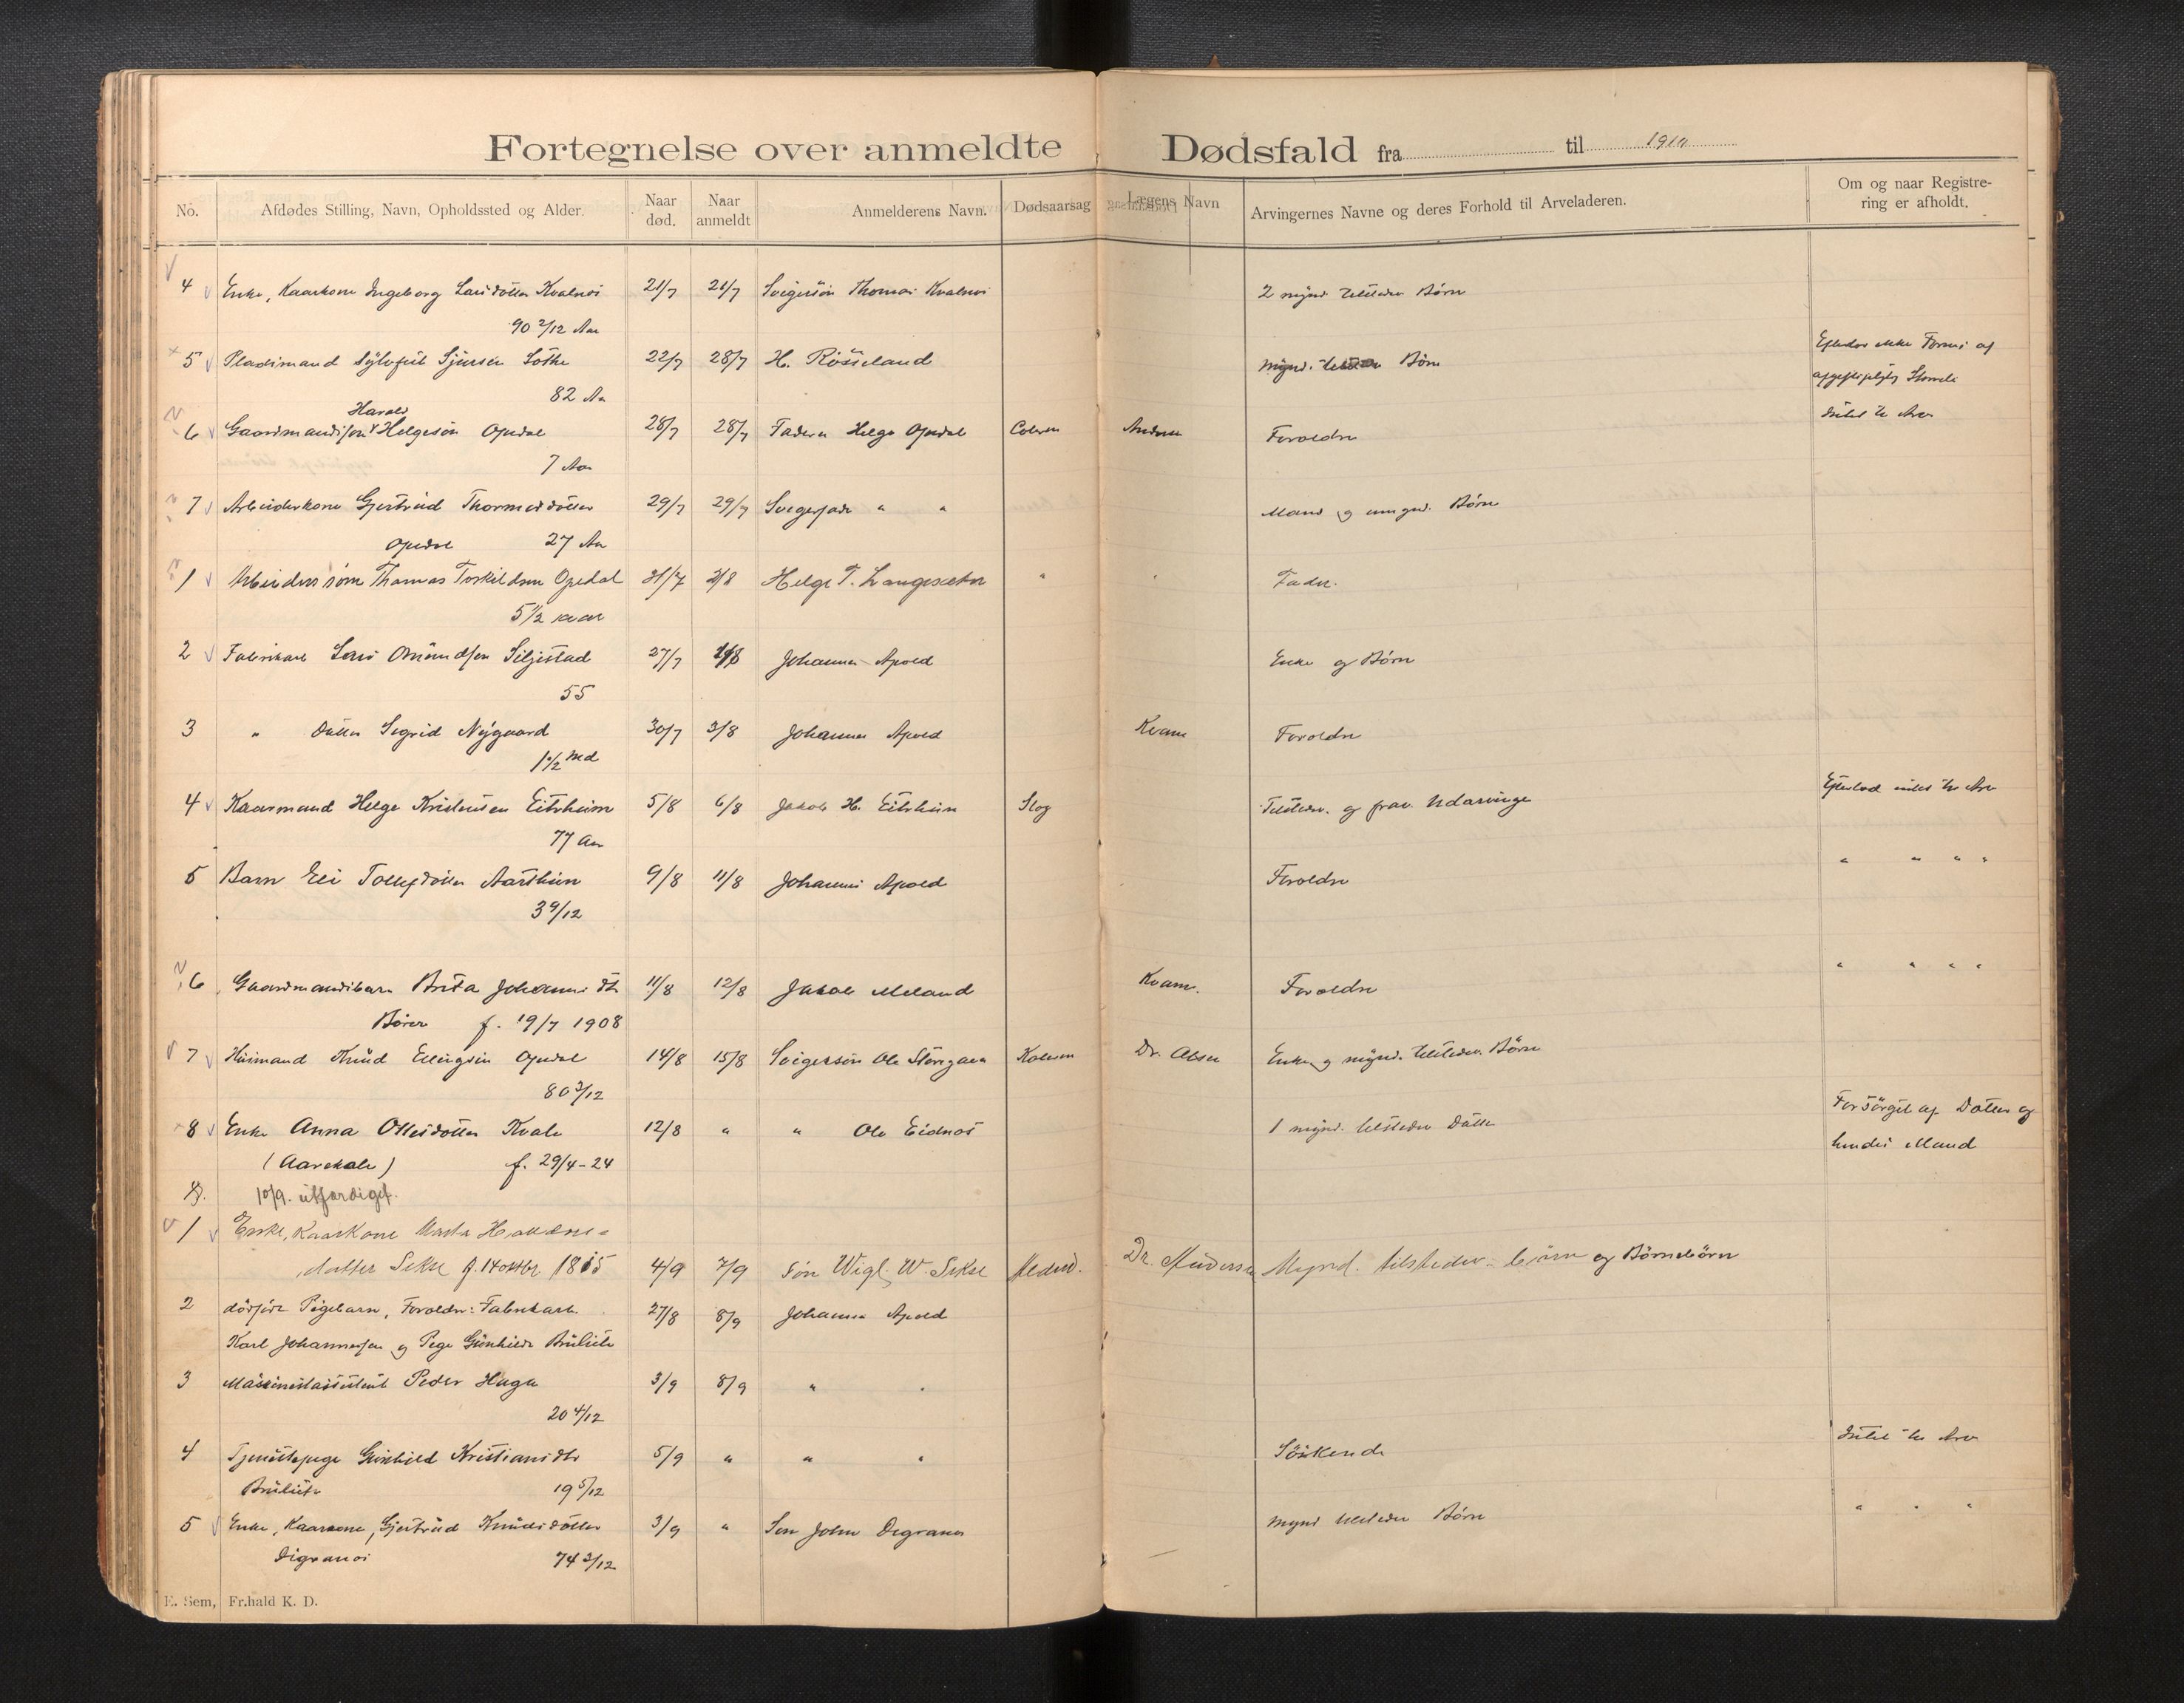 Fortegnelse over anmeldte Dødsfald fra til 1910
No. Afdødes Stilling, Navn, Opholdssted og Alder. Naar død. Naar anmeldt Anmelderens Navn. Dødsaarsag Lægens Navn Arvingernes Navne og deres Forhold til Arveladeren. Om og naar Registrering er afholdt.
4 Enke, Kaarkone Ingeborg Larsdotter Kvalnes 21/7 21/7 Svigersön Thomas Kvalnes 2 mynd. tilstedev Börn
90 2/12 Aar
5 Pladsmand Sylvfest Sjursen 22/7 28/7 H. Rösseland mynd. Börn Efterlod ikke Formue af
82 Aar
6 Gaardmandssön Harald Helgesön Opedal 28/7 28/7 Faderen Helge Opedal Andersen Foreldre Intet at Arve
7 Aar
7 Arbeiderkone Gjertrud Thormodsdotter 29/7 29/7 Svigerfader " " Mand og umynd. Börn
Opedal 27 Aar
1 Arbeiderssøn Thomas Torkildsen Opedal 31/7 3/8 Helge T. Langesæter " " Fader.
5 1/2 aar
2 Fabrikarb Lars Omundsen Seljestad 27/7 1/8 Johannes Apold Enke og Börn
55
3 " Datter Sigrid Nygaard 30/7 3/8 Johannes Apold Kvam Foreldre
1 1/2 Md
4 Kaarmand Helge Kristensen Eitrheim 5/8 6/8 Jakob H. Eitrheim Slag Tilstedev. og frav. Udarvinge Efterlod intet at Arve
77 Aar
5 Barn Eli Tollefsdotter Aartheim 9/8 11/8 Johannes Apold Foreldre " " " "
3 9/12
6 Gaardmandsbarn Brita Johannesdtr 11/8 12/8 Jakob Meland Kvam. Foreldre " " " "
Börve f. 19/7 1908
7 Husmand Knud Ellingsen Opedal 14/8 15/8 Svigersön Ole Kolesen Dr. Olsen Enke og mynd. tilstedev. Börn
80 3/12
8 Enke Anna Ottesdotter Kvale 12/8 " " Ole Eidnes 1 mynd. tilstedev Datter Forsörget af Datter og
(Aarekale) f. 29/4-24 hendes Mand
10/9. utfærdiget.
1 Enke, Kaarkone Marta
datter Sekse f. 14 oktbr. 1815 4/9 7/9 Søn Wigl. W. Sekse Alderd. Dr. Andersen Mynd. tilstedev. börn og Börnebörn
2 dödfödt Pigebarn, Foreldre: Fabrikarb. 27/8 8/9 Johannes Apold
Karl Johannesen og Pige Gunhild
3 Maskinistassistent Peder Haga 3/9 8/9 " "
20 4/12
4 Tjenestepige Gunhild Kristiansdtr 5/9 " " " Söskende Intet at Arve
19 5/12
5 Enke, Kaarkone, Gjertrud Knudsdotter 3/9 " Sön John Degranes Mynd tilstedev Börn " " "
Digranes 74 3/12
E. Sem, Fr.hald K. D.